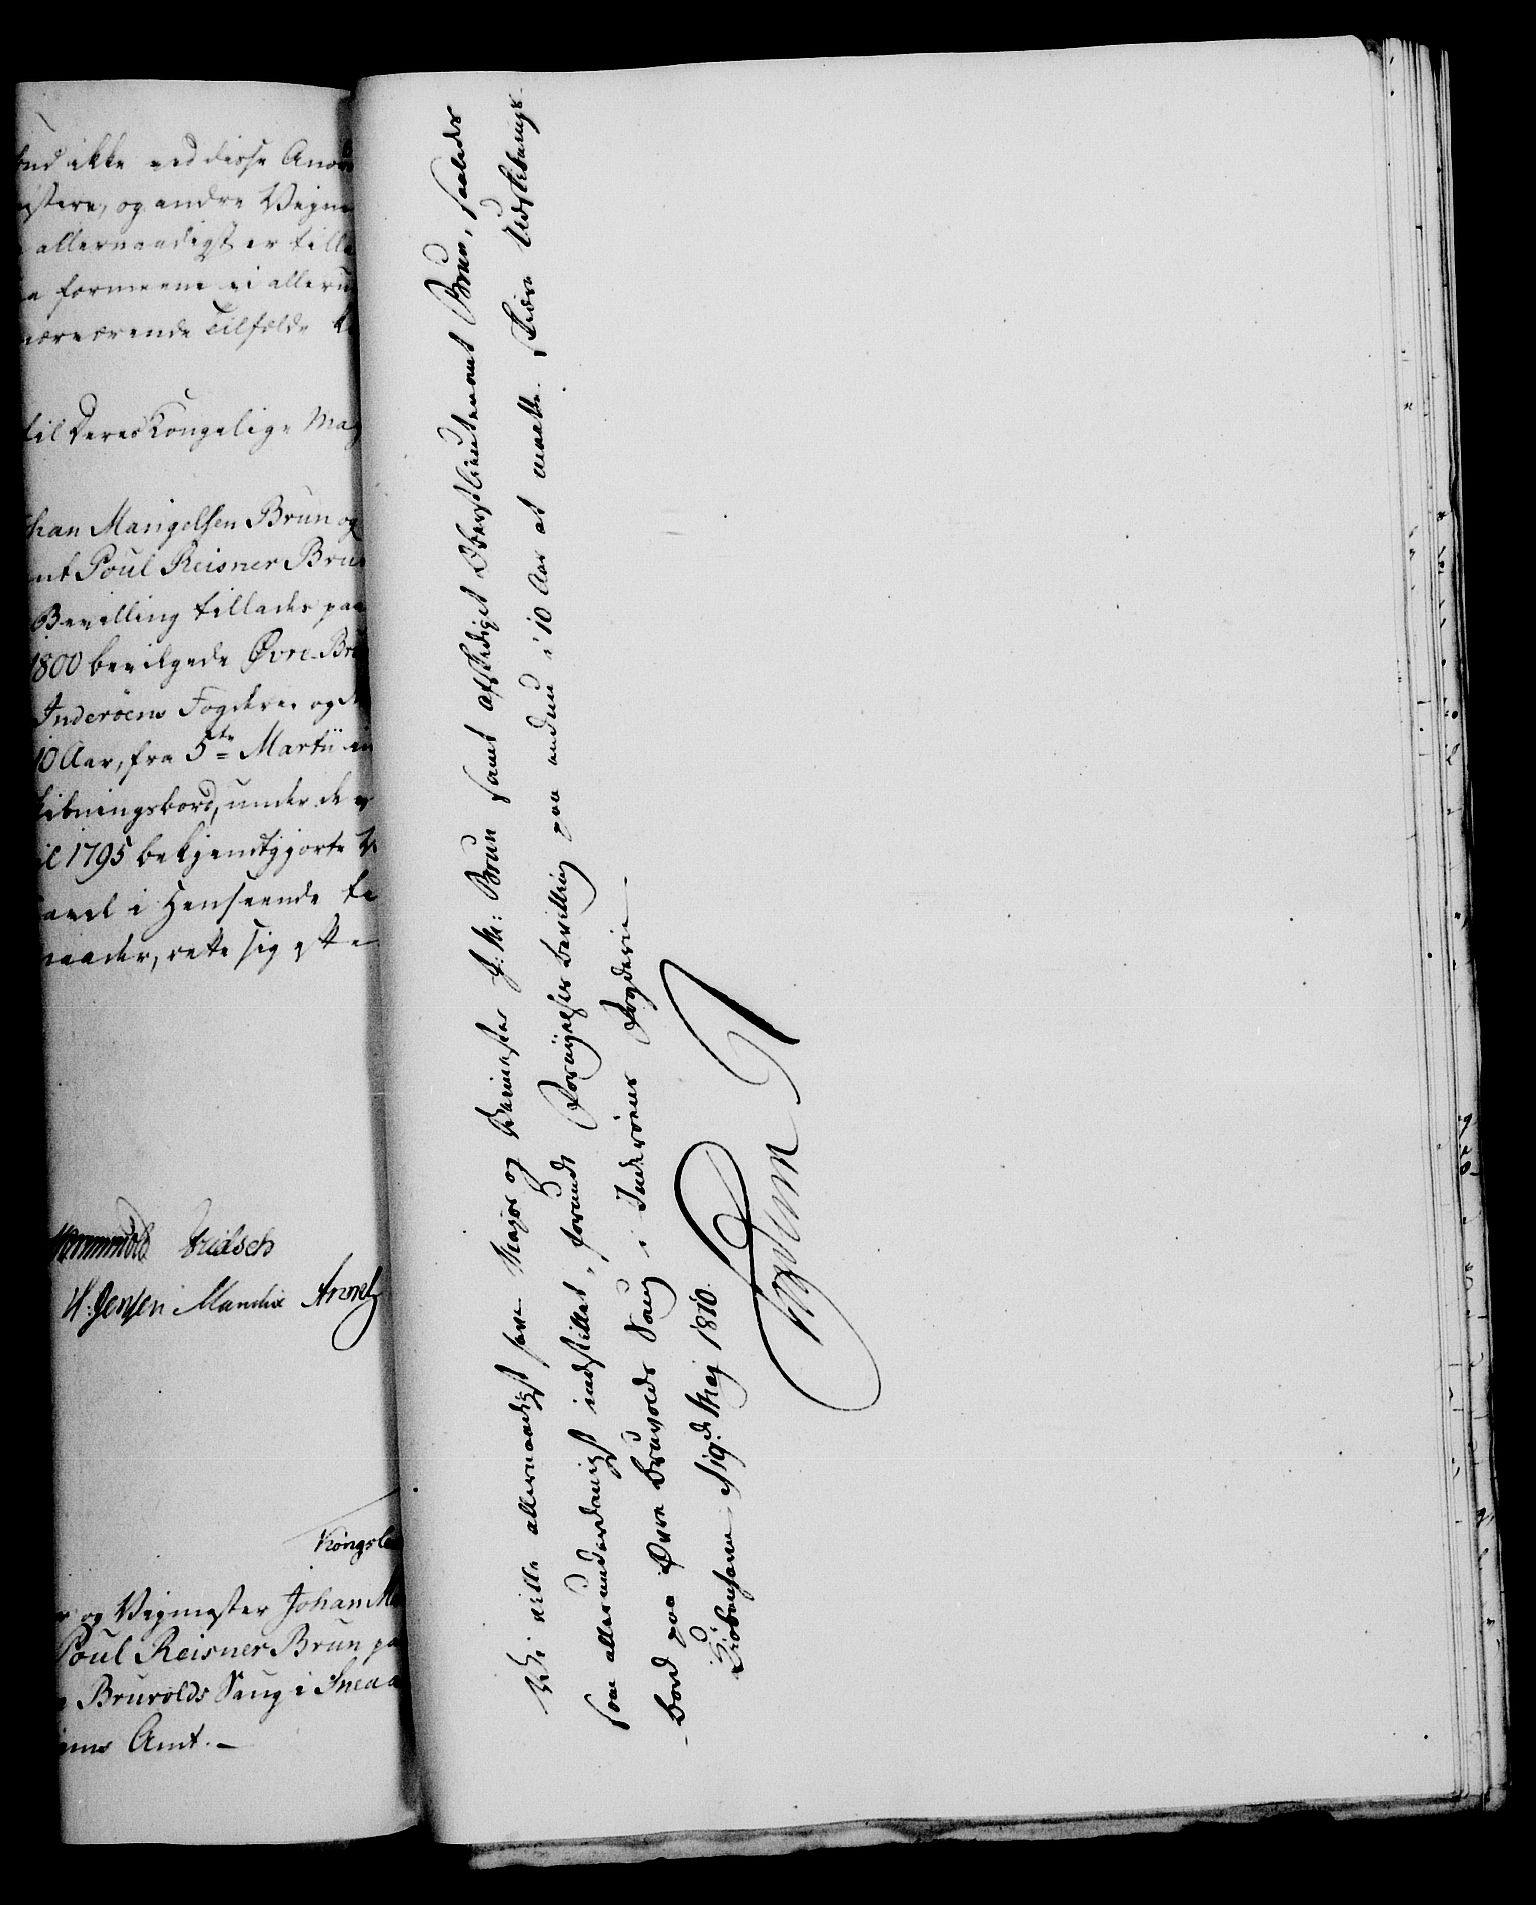 end ikke ved disse Anor
estere, og andre Vejme
allernaadigst er tilla
formeene vi alleru
nærværende Tilfælde
til Deres Kongelige Maj
han Mangelsen Brun og
nt Poul Reisner Brun
Bevilling tillades paa
1800 bevilgede Øvre Br
Inderöens Fogderie og
10 Aar, fra 5te Martii
kibningsbord, under de
il 1795 bekjendtgjorte
i Henseende
maader, rette sig efter
Fridsch
H. Jensen Mandix
Kongsl
og Vejmester Johan M
Poul Reisner Brun pa
Bruvolds Saug i Snea
Amt.
Vi ville allernaadigst have Major og Veimester J: M: Brun samt afskediget Oberstlieutenant Brun, saaledes
som allerunderdanigst indstillet, forundt Fornÿelses Bevilling paa endnu i 10 Aar at maatte skiære Udskibnings-
bord paa Øvre Bruvolds Saug i Inderöens Fogderie.
Kiöbenhavn d. 19de Maj 1810.